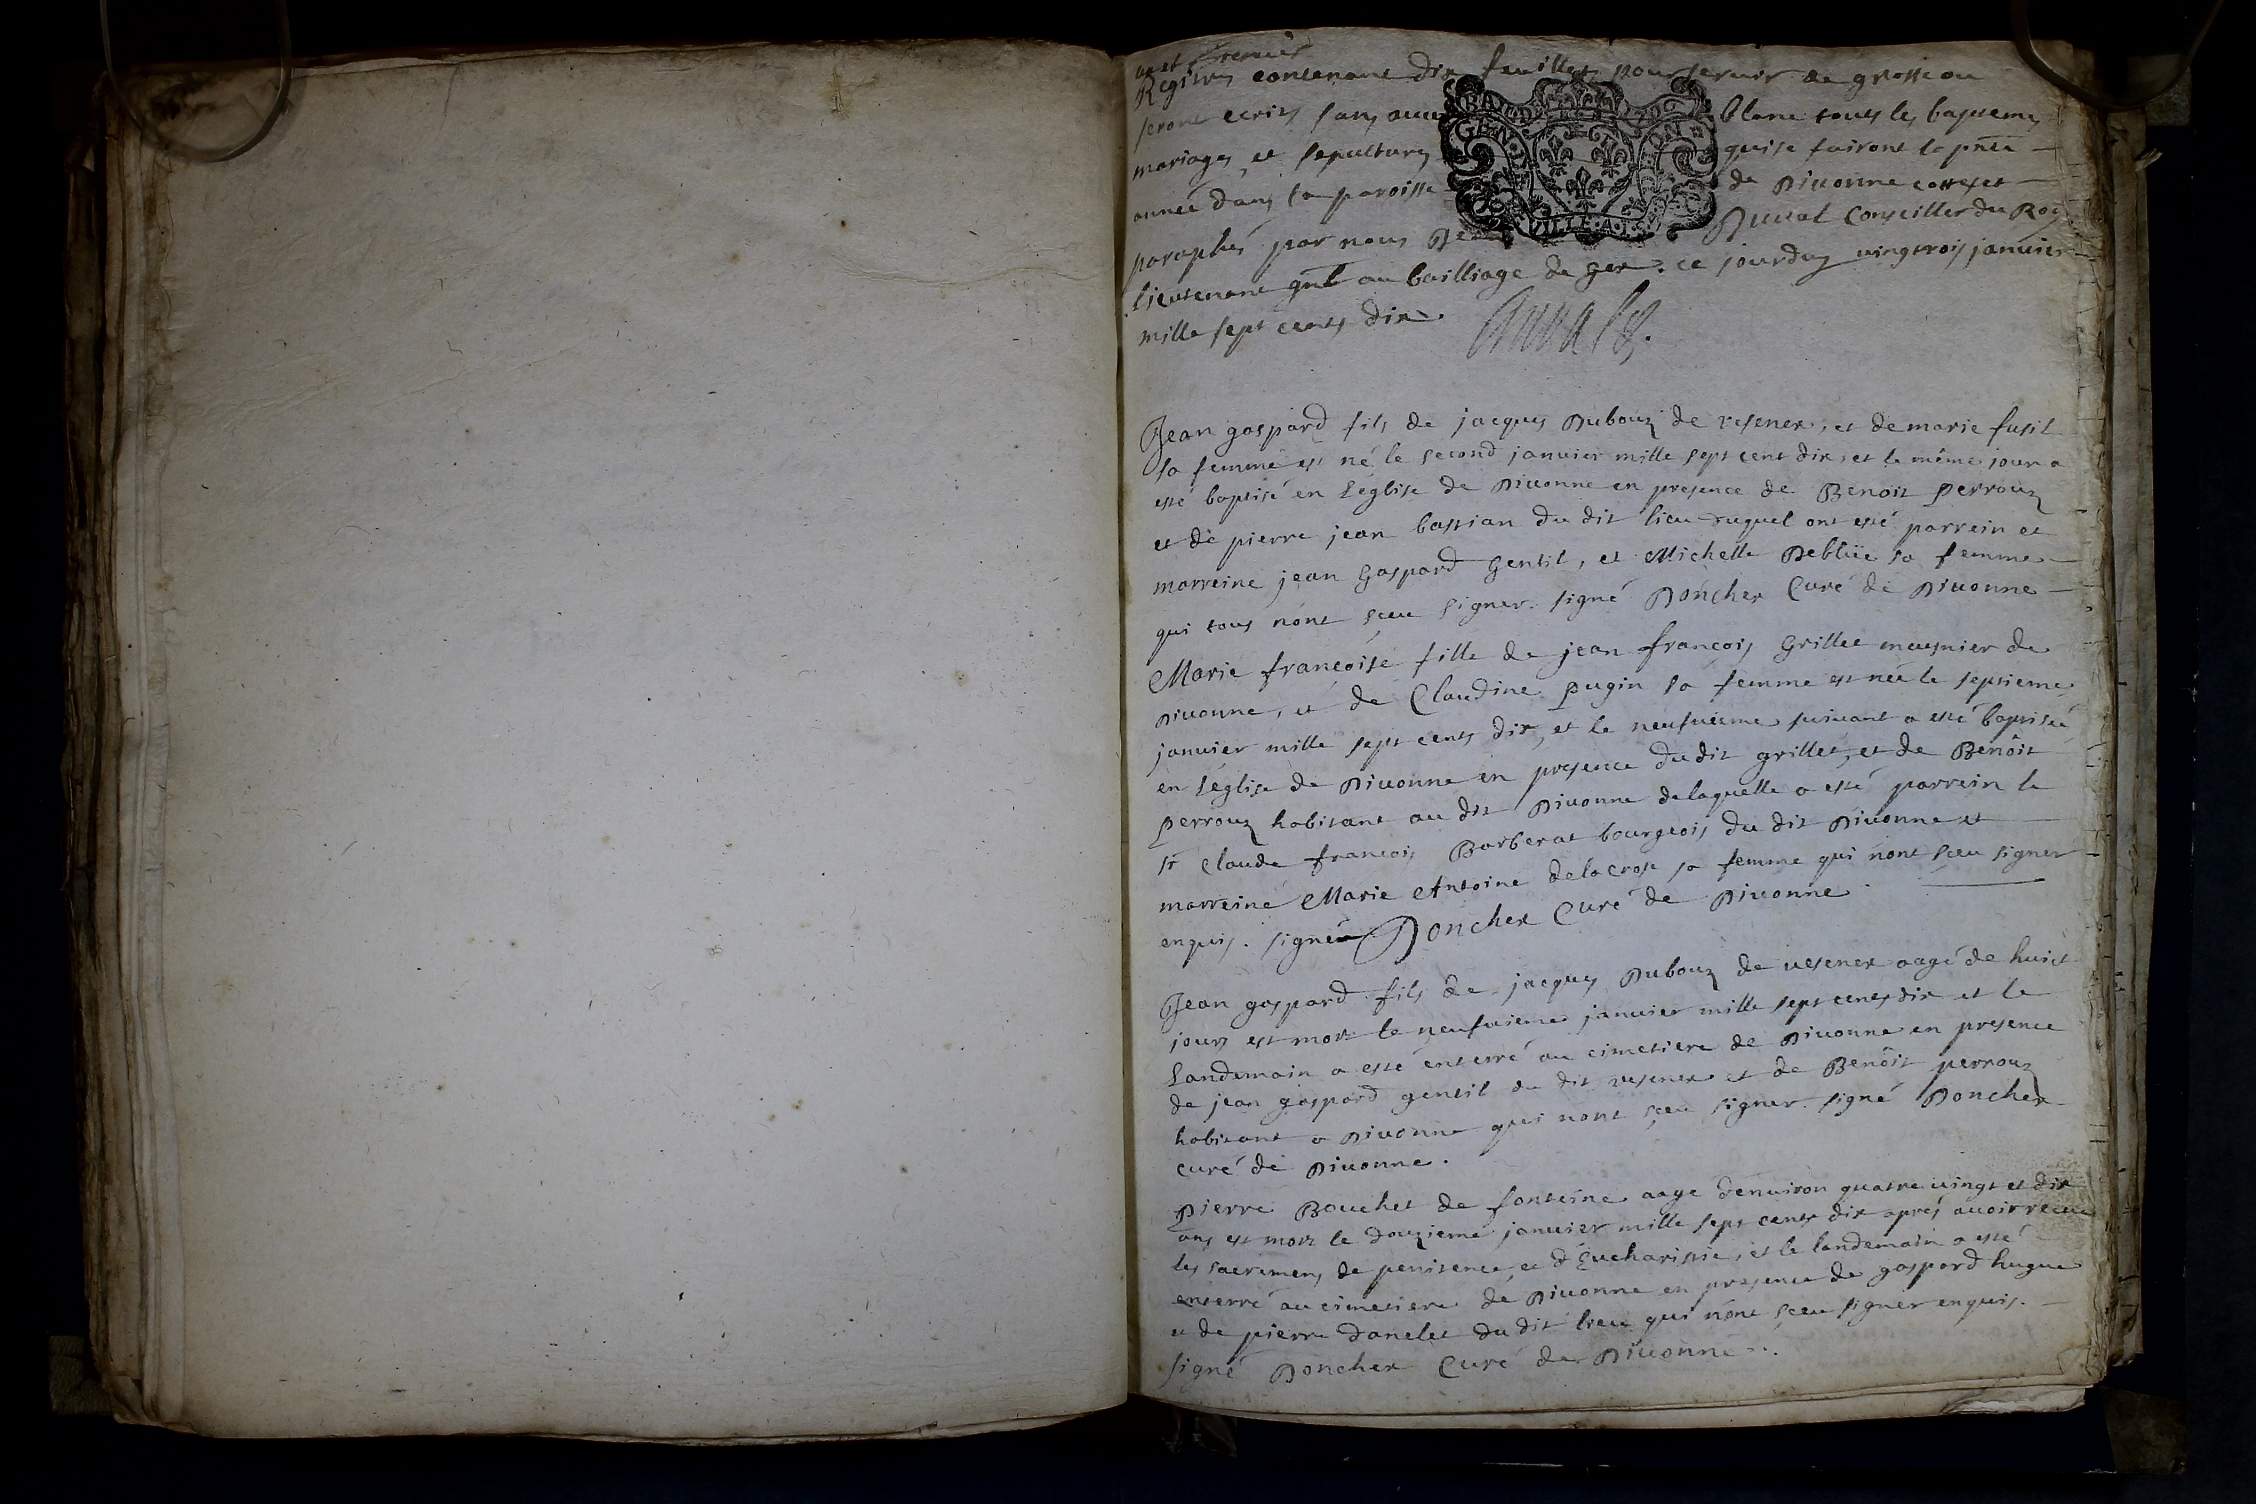 un et premier
Registres contenant dix feuilles pour servir de grosse ou
seront ecrits sans aucun blanc tous les baptemes
mariages et sepultures qui se fairont la pnte
année dans la paroisse de Divonne cottés et
paraphés par nous Duval Conseiller du Roy
Lieutenant gnl au bailliage de gex. ce jourduy vingtrois janvier
mille sept cents dix.
Duval
GEN
VILLE
Jean gaspard fils de jacques Dubouz de vesenex, et de marie fusil
sa femme est né le second janvier mille sept cent dix, et le même jour a
esté baptisé en Léglise de Divonne en presence de Benoit perrouz
et de pierre jean bastian du dit lieu duquel ont esté parrein et
marreine jean Gaspard Gentil, et Michelle Deblüe sa femme
qui tous n'ont sceu signer. signé Doncher Curé de Divonne
Marie françoise fille de jean françois Grillet meusnier de
Divonne, et de Claudine pugin sa femme est née le septieme
janvier mille sept cents dix, et le neufuieme suivant a esté baptisée
en Léglise de Divonne en presence du dit grillet, et de Benoit
perrouz habitant au dit Divonne delaquelle a esté parrein le
sr Claude françois Barberat bourgeois du dit Divonne et
marreine Marie Antoine delacrose sa femme qui n'ont sceu signer
enquis. signé Doncher Curé de Divonne.
Jean gaspard fils de jacques Dubouz de vesenex aagé de huict
jours est mort le neufuieme janvier mille sept cents dix et le
Landemain a esté enterré au cimetiere de Divonne en presence
de jean gaspard gentil du dit vesenex et de Benoît perrouz
habitant a Divonne qui n'ont sceu signer. signé Doncher
curé de Divonne.
pierre Bouchet de fonteine aagé denviron quatre vingt et dix
ans est mort le douzieme janvier mille sept cents dix aprés avoir receu
les sacremens de penitence, et d'Eucharistie, et le landemain a esté
enterré au cimetiere de Divonne en presence de gaspard hugue
et de pierre danelet du dit lieu qui n'ont sceu signer enquis.
signé Doncher Curé de Divonne.